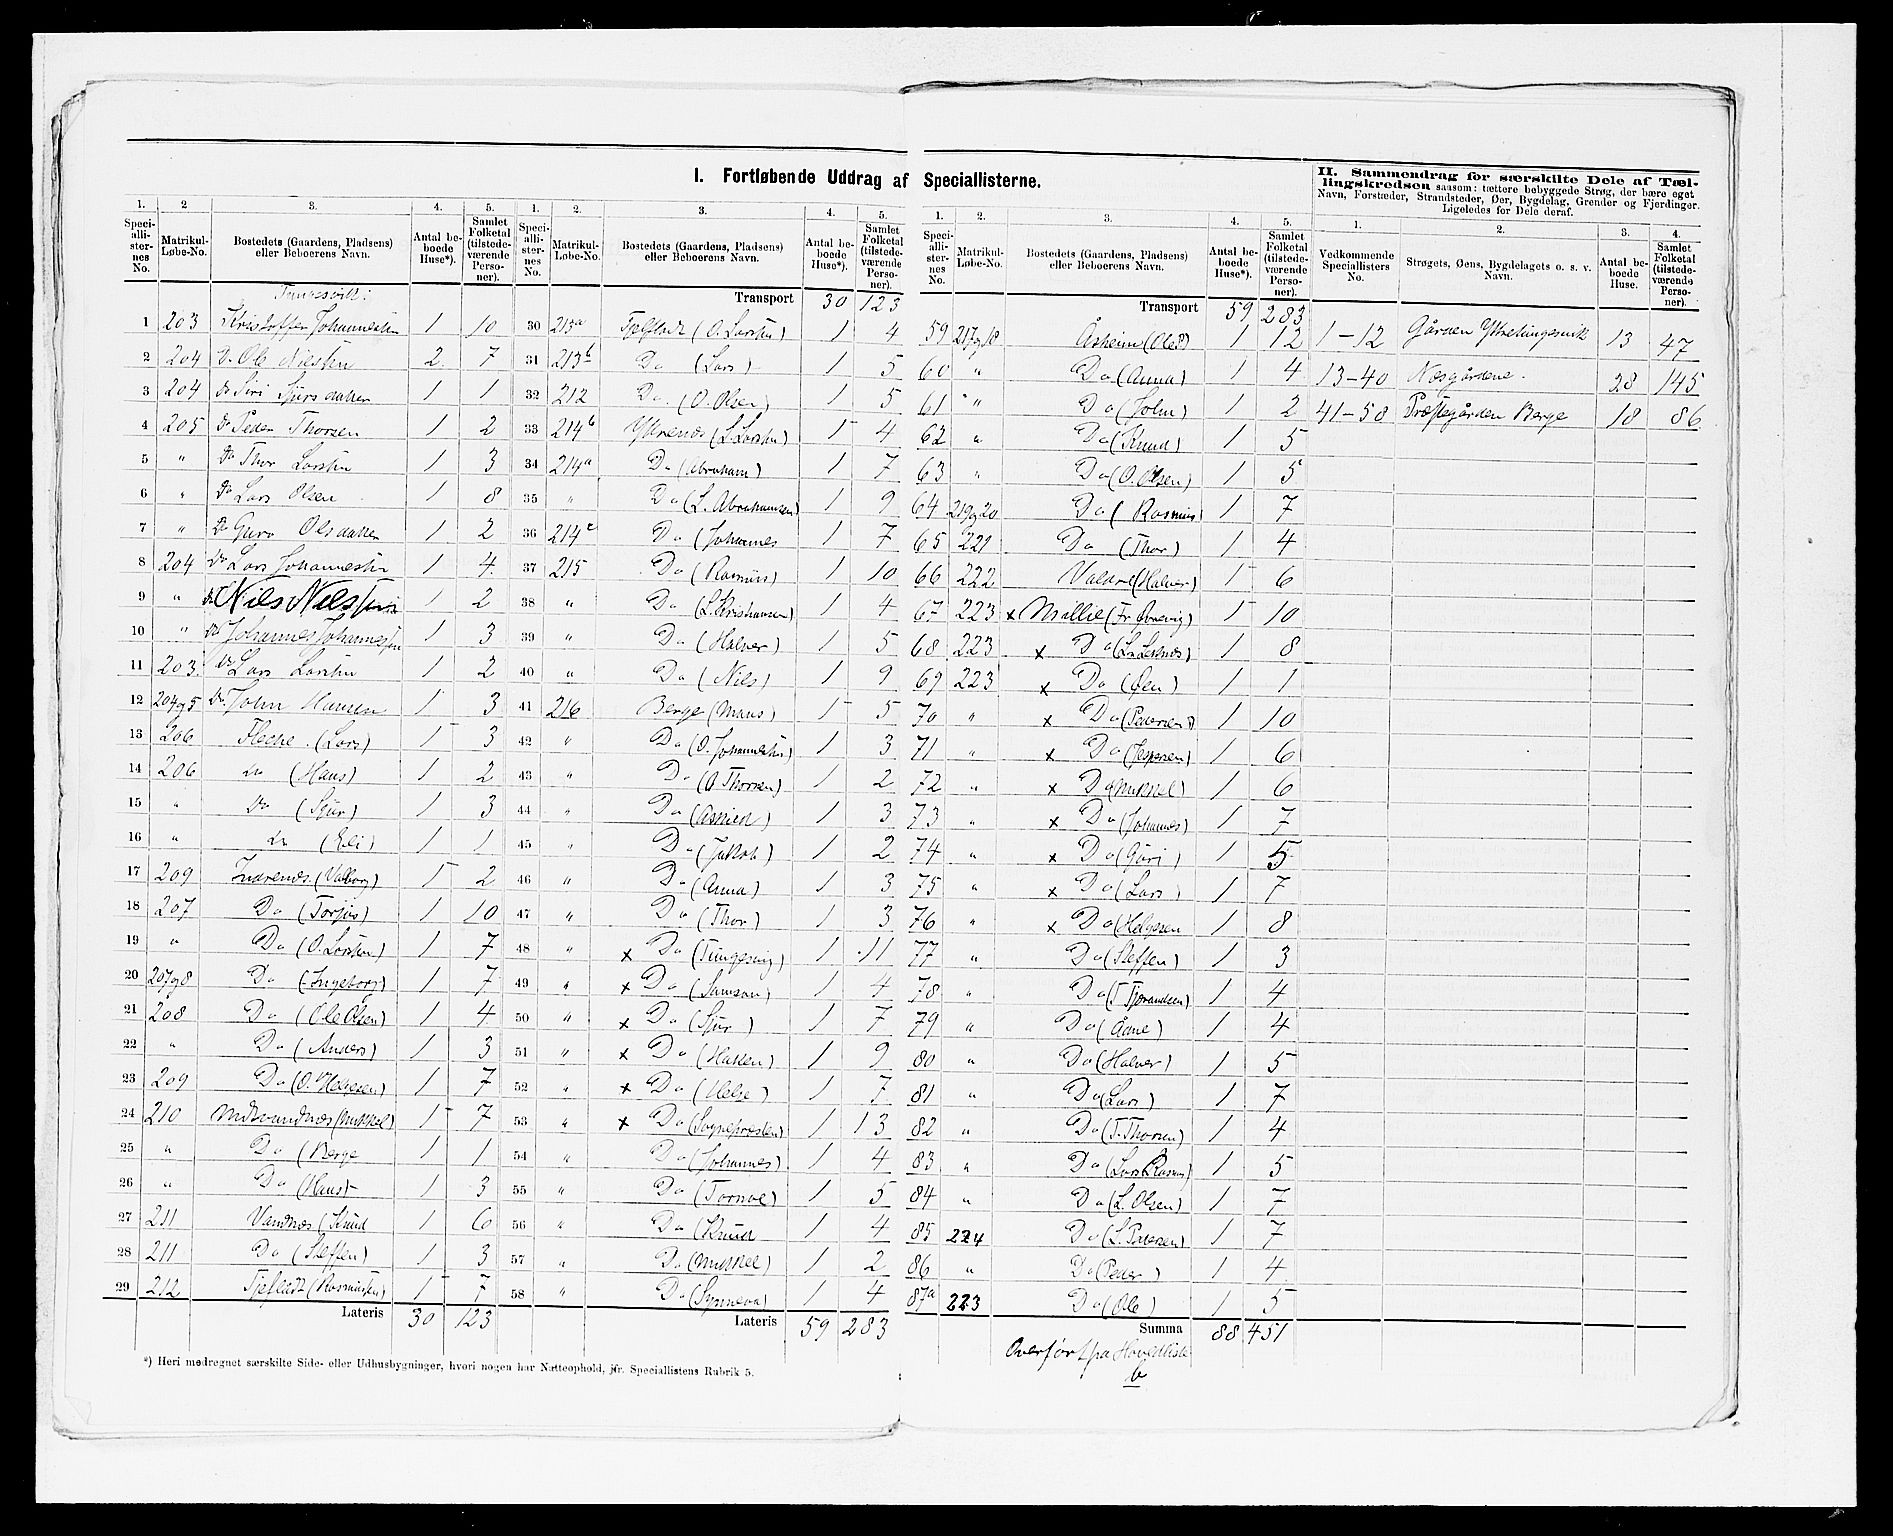 I. Fortløbende Uddrag af Speciallisterne.
II. Sammendrag for særskilte Dele af Tællingskredsen saasom: tættere bebyggede Strøg, der bære eget Navn, Forstæder, Strandsteder, Øer, Bygdelag, Grender og Fjerdinger. Ligeledes for Dele deraf.
1. 2 3. 4. 5. 1. 2. 3. 4. 5. 1. 2. 3. 4. 5. 1. 2. 3. 4.
Speciallisternes No. Matrikul-Løbe-No. Bostedets (Gaardens, Pladsens) eller Beboerens Navn. Antal beboede Huse*). Samlet Folketal (tilstedeværende Personer).
Tungesvik:
1 203 Kristoffer Johannesen 1 10
2 204 Do Ole Nielsen 2 7
3 204 Do Siri Sjursdatter 1 1
4 205 Do Peder Thorsen 1 2
5 " Do Thor Larsen 1 3
6 " Do Lars Olsen 1 8
7 " Do Guro Olsdatter 1 2
8 204 Do Lars Johannesen 1 4
9 " Do Nils Nilssen 1 2
10 " Do Johannes Johannessen 1 3
11 203 Do Lars Larsen 1 2
12 204og5 Do John Hansen 1 3
13 206 Fleche (Lars) 1 3
14 206 do (Hans) 1 2
15 " Do (Sjur) 1 3
16 " do (Eli) 1 1
17 209 Indrenæs (Valborg) 1 2
18 207 Do (Torjus) 1 10
19 " Do (O. Larsen) 1 7
20 207og8 Do (Ingeborg) 1 7
21 208 Do (Ole Olsen) 1 4
22 " Do (Anders) 1 3
23 209 Do (O. Helgesen) 1 7
24 210 Midtvandnæs (Mikkel) 1 7
25 " Do (Berge 1 1
26 " Do (Hans) 1 3
27 211 Vandnæs (Knud 1 6
28 211 Do (Steffen) 1 3
29 212 Tjefladt (Rasmussen) 1 7
Lateris 30 123
Transport 30 123
30 213a Tjefladt (O. Larsen) 1 4
31 213b Do (Lars) 1 5
32 212 Do (O. Olsen) 1 5
33 214b Ytrenæs (L. Larsen) 1 4
34 214a Do (Abraham) 1 7
35 " Do (L. Abrahamsen) 1 9
36 214c Do (Johannes 1 7
37 215 Do (Rasmus) 1 10
38 " Do (L. Kristiansen) 1 4
39 " Do (Halver) 1 5
40 " Do (Nils) 1 9
41 216 Berge (Mans) 1 5
42 " Do (O. Johannesen) 1 3
43 " Do (O Thorsen) 1 2
44 " Do 1 3
45 " Do (Jakob) 1 2
46 " Do (Anna) 1 3
47 " Do (Thor) 1 3
48 " x Do (Tungesvig) 1 11
49 " x Do (Samson) 1 4
50 " x Do (Sjur) 1 7
51 " x Do (Haken) 1 9
52 " x Do (Helge) 1 7
53 " x Do (Sognepresten) 1 13
54 " Do (Johannes) 1 4
55 " Do (Tornoe) 1 5
56 " Do (Knud 1 4
57 " Do (Mikkel) 1 2
58 " Do (Synneva) 1 4
Lateris 59 283
Transport 59 283
59 217og18 Åsheim (Ole) 1 12
60 " Do (Anna) 1 4
61 " Do (John) 1 2
62 " Do (Knud) 1 5
63 " Do (O. Olsen) 1 5
64 219og20 Do (Rasmus) 1 7
65 221 Do (Thor) 1 4
66 222 Valare (Halver) 1 6
67 223 x Millie (Fr. Øvrevig) 1 10
68 223 x Do 1 8
69 223 x Do (Øen) 1 1
70 " x Do (Petersen) 1 10
71 " x Do (Jespersen) 1 6
72 " x Do (Mikkel) 1 6
73 " x Do (Johannes) 1 7
74 " x Do (Guri) 1 5
75 " x Do (Lars) 1 7
76 " x Do (Helgesen 1 8
77 " Do (Steffen) 1 3
78 " Do (T Tjerandsen) 1 4
79 " Do (Aane) 1 4
80 " Do (Halver) 1 5
81 " Do (Lars) 1 7
82 " Do (T. Thorsen) 1 4
83 " Do (Lars Rasmus) 1 5
84 " Do (L. Olsen) 1 7
85 224 Do (L. Petersen) 1 7
86 " Do (Peder) 1 4
87a 223 Do (Ole) 1 5
Summa 88 451
Overført fra Hovedliste b
Vedkommende Speciallisters No. Strøgets, Øens, Bygdelagets o. s. v. Navn. Antal beboede Huse. Samlet Folketal (tilstedeværende Personer).
1–12 Gården Ytretungesvik 13 47
13–40 Næsgårdene 28 145
41–58 Præstegården Berge 18 86
*) Heri medregnet særskilte Side- eller Udhusbygninger, hvori nogen har Natteophold, jfr. Speciallistens Rubrik 5.